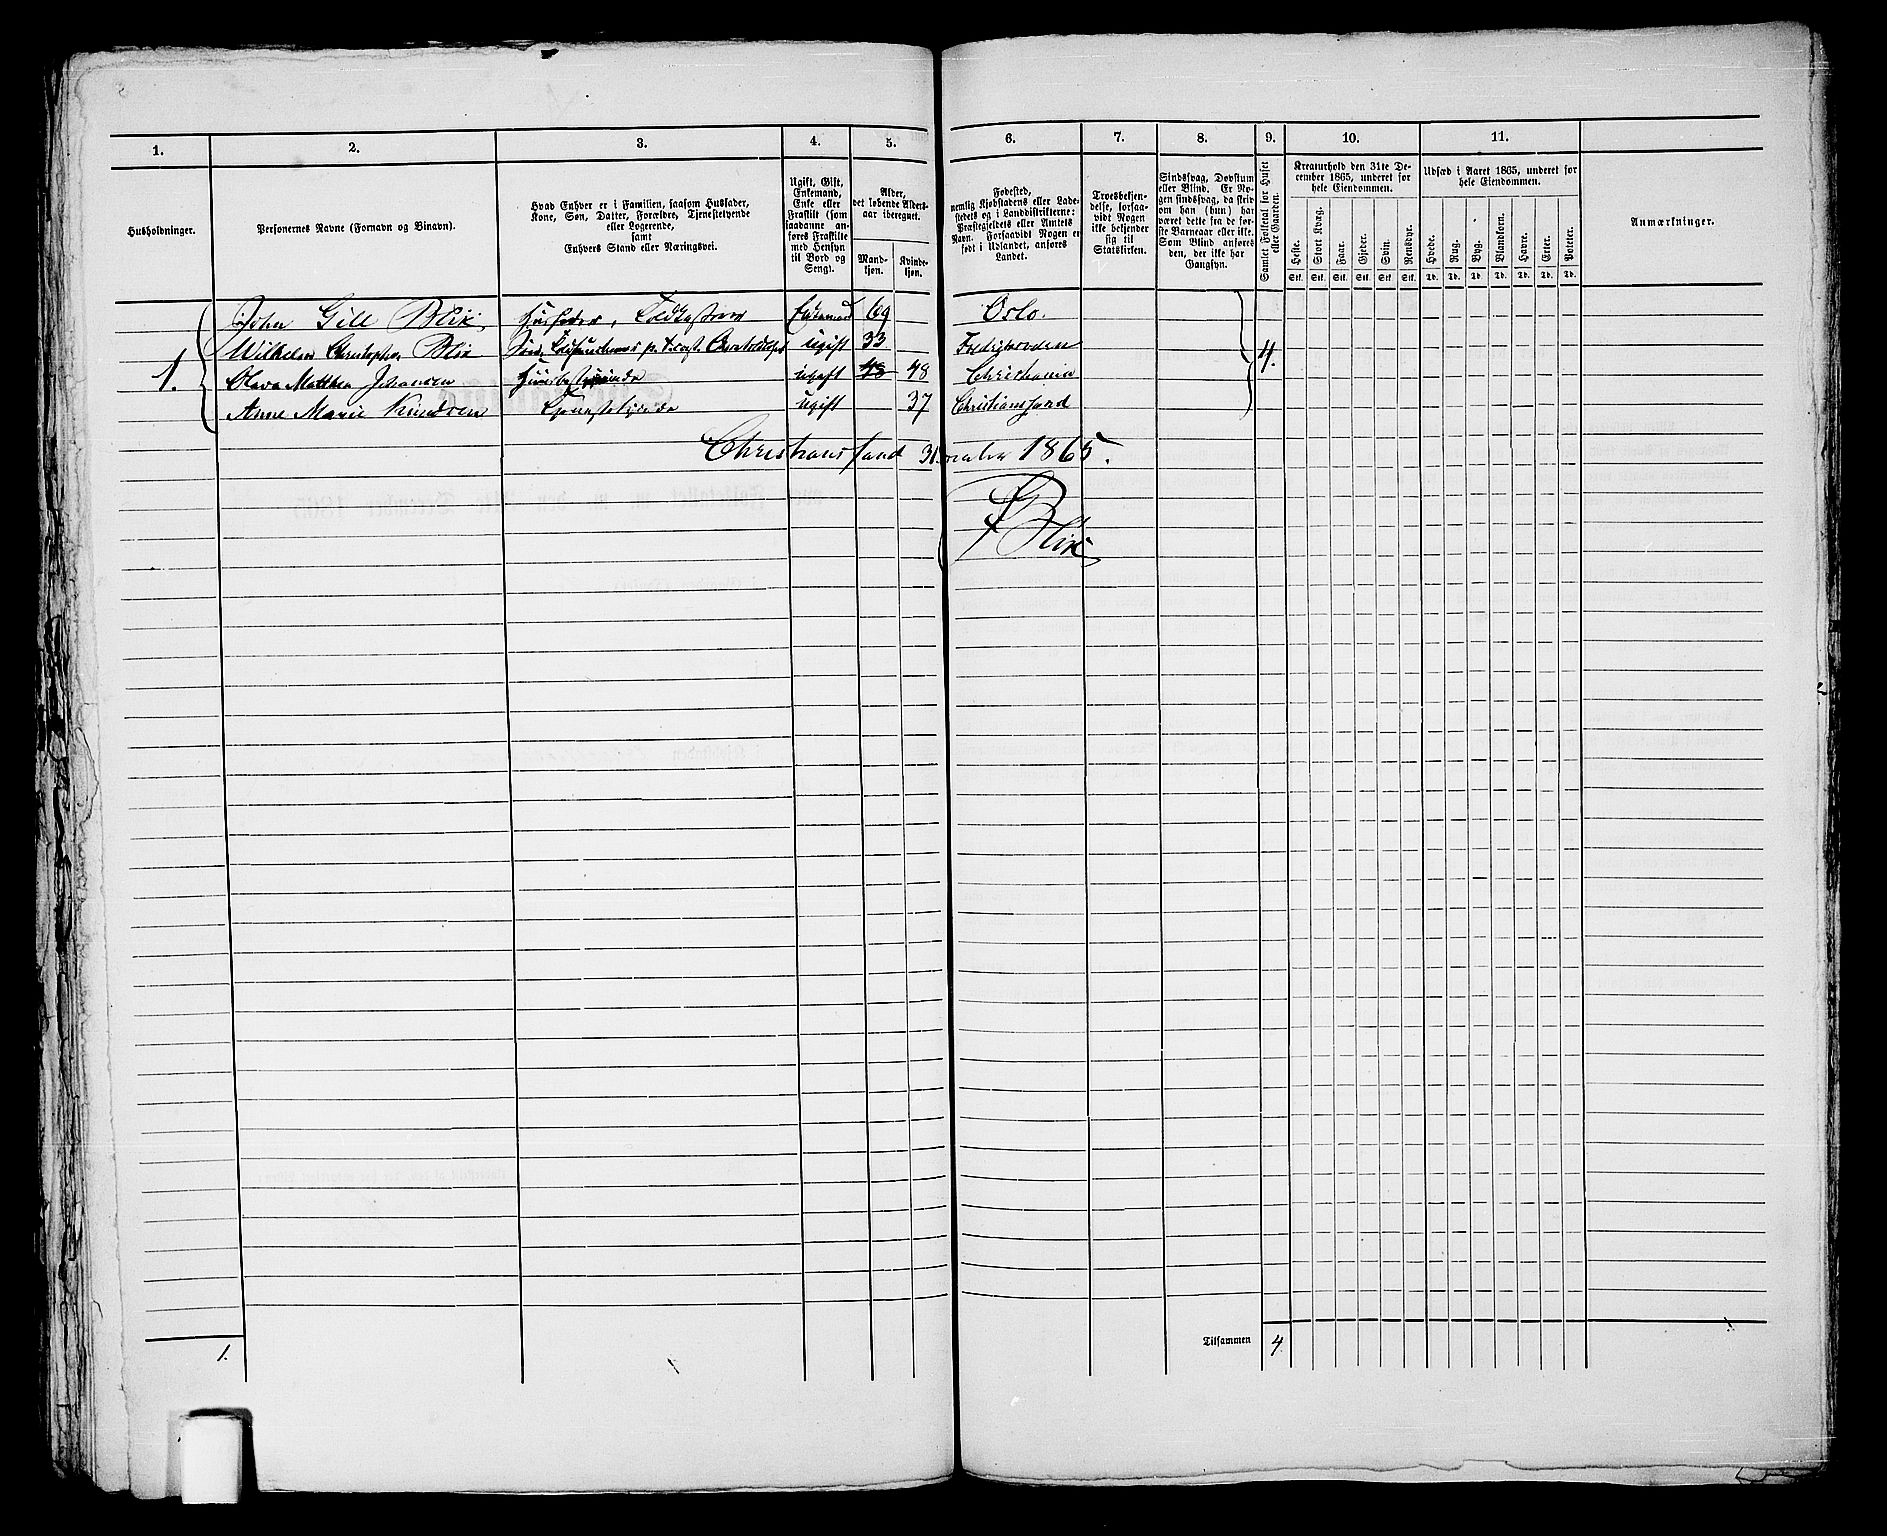 1. 2. 3. 4. 5. 6. 7. 8. 9. 10. 11.
Husholdninger.
Personernes Navne (Fornavn og Binavn).
Hvad Enhver er i Familien, saasom Husfader,
Kone, Søn, Datter, Forældre, Tjenestetyende
eller Logerende,
samt
Enhvers Stand eller Næringsvei.
Ugift, Gift,
Enkemand,
Enke eller
Fraskilt (som
saadanne an-
føres Fraskilte
med Hensyn
til Bord og
Seng).
Alder,
det løbende Alders-
aar iberegnet.
Mand-
kjøn.
Kvinde-
kjøn.
Fødested,
nemlig Kjøbstadens eller Lade-
stedets og i Landdistrikterne:
Præstegjeldets eller Amtets
Navn. Forsaavidt Nogen er
født i Udlandet, anføres
Landet.
Troesbekjen-
delse, forsaa-
vidt Nogen
ikke bekjender
sig til
Statskirken.
Sindssvag, Døvstum
eller Blind. Er No-
gen sindssvag, da skri-
ves om han (hun) har
været dette fra de før-
ste Barneaar eller ikke.
Som Blind anføres
den, der ikke har
Gangsyn.
Samlet Folketal for Huset
eller Gaarden.
Kreaturhold den 31te De-
cember 1865, underet for
hele Eiendommen.
Heste. Stort Kvæg. Faar. Gjeder. Svin. Rensdyr.
Stk. Stk. Stk. Stk. Stk. Stk.
Udsæd i Aaret 1865, underet for
hele Eiendommen.
Hvede. Rug. Byg. Blandkorn. Havre. Erter. Poteter.
Td. Td. Td. Td. Td. Td. Td.
Anmærkninger.
John Gill Blix Husfader, Toldkasserer Enkemand 69 Oslo.
Wilhelm Christopher Blix Søn, ugift 33
1. Olava Mathea Johansen Huusbestyrinde ugift 48 48 Christiania 4.
Anne Marie Knudsen Tjenestetyende ugift 37 Christianssand
Christianssand 31 1865.
Blix
1. Tilsammen 4